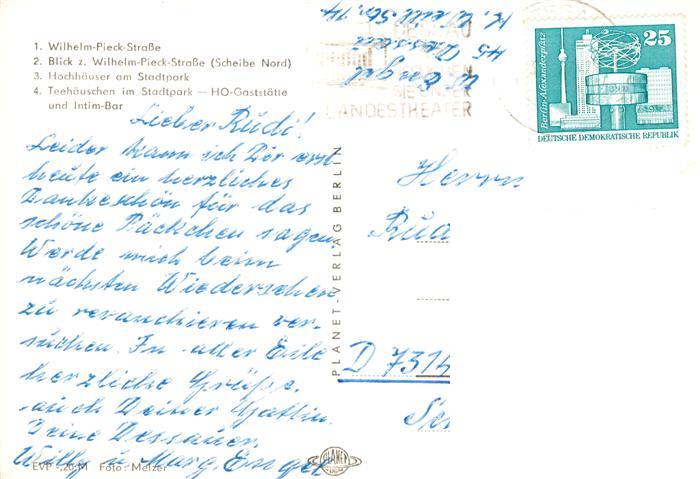 1. Wilhelm-Pieck-Straße
2. Blick z. Wilhelm-Pieck-Straße (Scheibe Nord)
3. Hochhäuser am Stadtpark
4. Teehäuschen im Stadtpark — HO-Gaststätte
und Intim-Bar
Lieber Rudi!
Leider kann ich Dir erst
heute ein herzliches
Dankeschön für das
schöne Päckchen sagen.
Werde mich beim
nächsten Wiedersehen
zu revanchieren ver-
suchen. In aller Eile
herzliche Grüße,
auch Deiner Gattin.
Deine Dessauer
Willy u Marg. Engel
EVP -,20 M Foto: Melzer
PLANET-VERLAG BERLIN
PLANET
W. Engel
45 Dessau
K. Weill Str. 14
DESSAU
SIE
LANDESTHEATER
Berlin-Alexanderplatz
25
DEUTSCHE DEMOKRATISCHE REPUBLIK
Herrn
D 7314